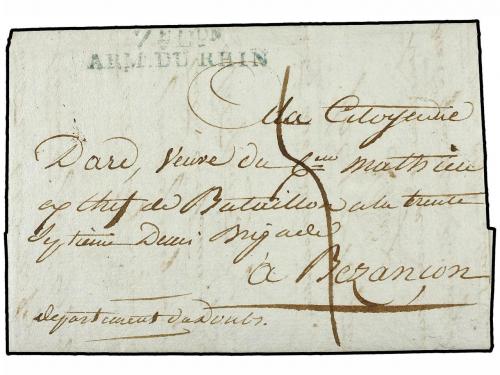 7E DON
ARM. DU RHIN
a la Citoyenne
Dard, veuve du Cen Mathieu
ex chef de Bataillon a la trente
Septieme Demi Brigade
à Bezançon
departement du Doubs.